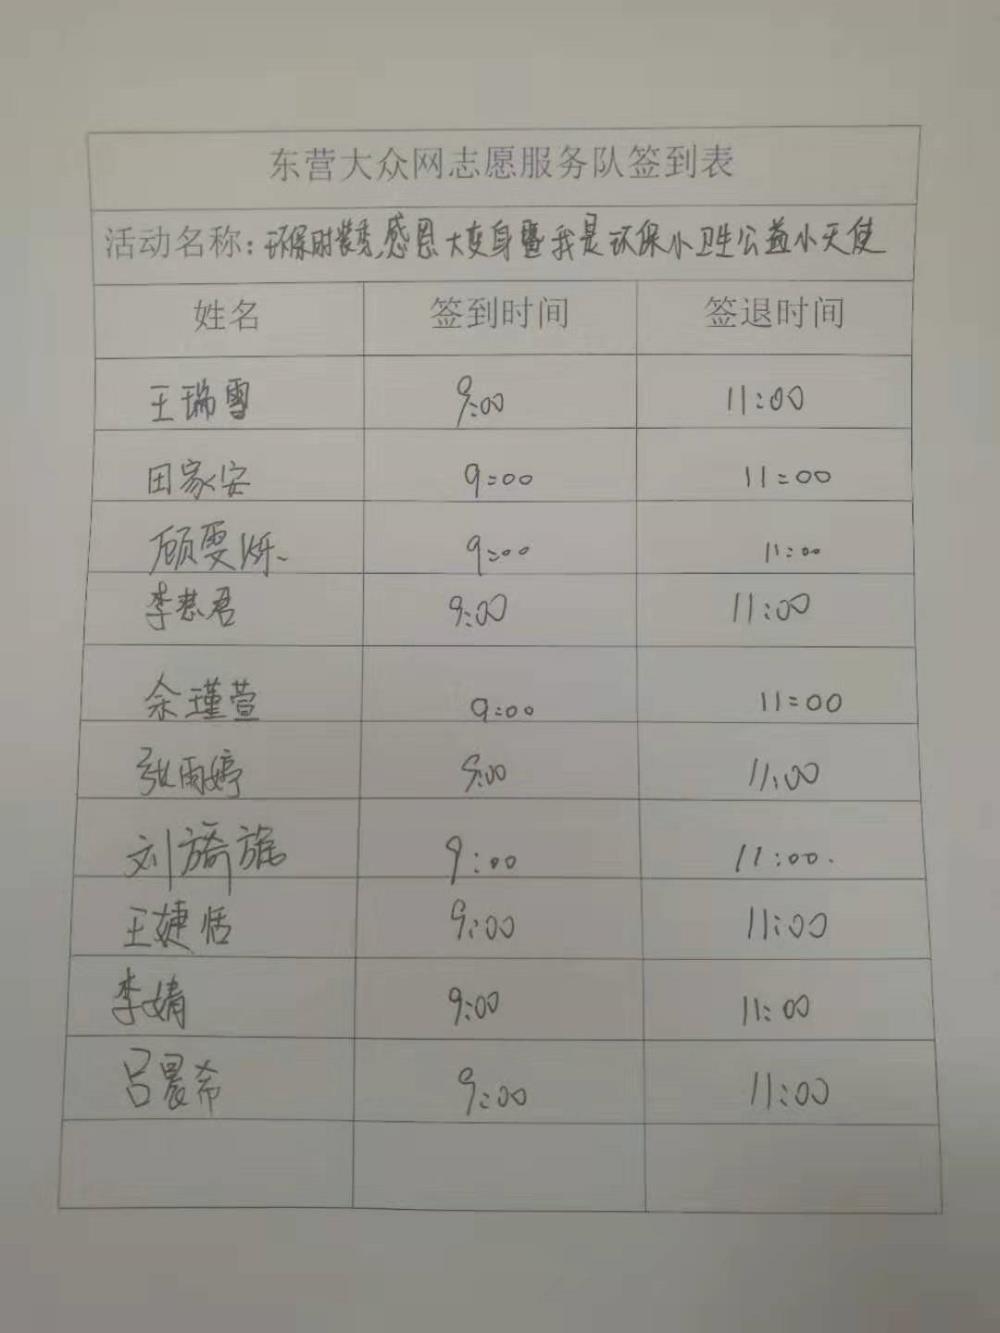 东营大众网志愿服务队签到表
活动名称：环保时装秀,感恩大变身暨我是环保小卫生公益小天使
姓名 签到时间 签退时间
王瑞雪 9:00 11:00
田家安 9:00 11:00
顾雯烁 9:00 11:00
李慧君 9:00 11:00
余瑾萱 9:00 11:00
张雨婷 9:00 11:00
刘旖旎 9:00 11:00
王婕恬 9:00 11:00
李婧 9:00 11:00
吕晨希 9:00 11:00